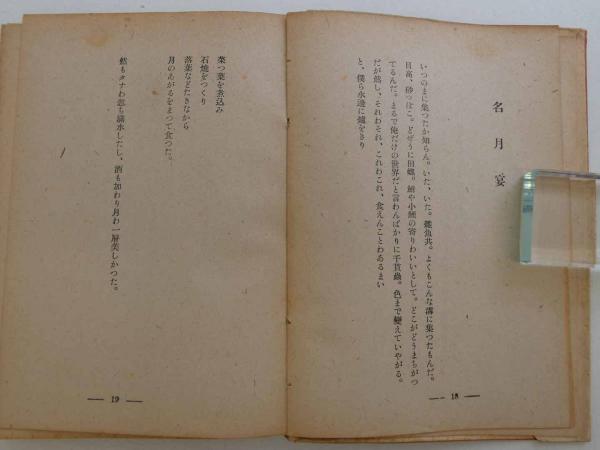 名月宴
いつのまに集つたか知らん。いた、いた。雜魚共。よくもこんな溝に集つたもんだ。
目高、砂っぽこ。どぜうに田螺。鮒や小鮒の寄りわいいとして。どこがどうまちがつ
てるんだ。まるで俺だけの世界だと言わんばかりに千貫蟲。色まで變えていやがる。
だが然し、それわそれ、これわこれ、食えんことわあるまい
と、僕ら水邊に爐をきり
— 18 —
菜っ葉を煮込み
石燒をつくり
落葉などたきながら
月のあがるをまつて食つた。
然もタナわ忽も満水したし、酒も加わり月わ一層美しかつた。
— 19 —